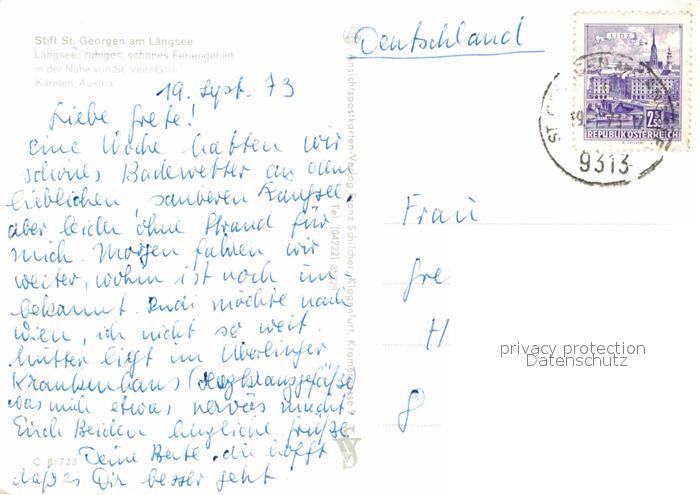 Stift St. Georgen am Längsee
Längsee: ruhiges, schönes Feriengebiet
in der Nähe von St. Veit/Glan
Kärnten, Austria
19. Sept. 73
Liebe Grete!
eine Woche hatten wir
schönes Badewetter an dem
lieblichen, sauberen Längsee,
aber leider ohne Strand für
mich. Morgen fahren wir
weiter, wohin ist noch un,
bekannt. Rudi möchte nach
Wien, ich nicht so weit.
Mutter liegt im Überlinger
Krankenhaus (Herzkranzgefäße
was mich etwas nervös macht.
Euch Beiden herzliche Grüße
Deine Beate, die hofft
daß es Dir besser geht
C 8/723
Ansichtspostkarten-Verlag Franz Schilcher, Klagenfurt
Tel. (04222)
Deutschland
LINZ
REPUBLIK ÖSTERREICH
9313
Frau
Gre
H
8
privacy protection
Datenschutz